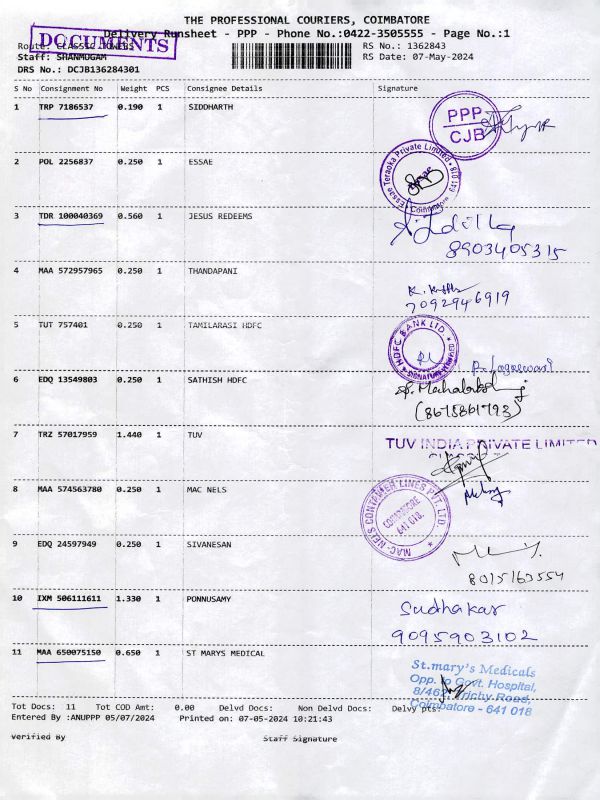 THE PROFESSIONAL COURIERS, COIMBATORE
Delivery Runsheet - PPP - Phone No.:0422-3505555 - Page No.:1
DOCUMENTS
Route: CLASSIC TOWERS
RS No.: 1362843
Staff: SHANMUGAM
RS Date: 07-May-2024
DRS No.: DCJB136284301
S No Consignment No Weight PCS Consignee Details Signature
1 TRP 7186537 0.190 1 SIDDHARTH
PPP
CJB
2 POL 2256837 0.250 1 ESSAE
Essae Teraoka Private Limited
Coimbatore
3 TDR 100040369 0.560 1 JESUS REDEEMS
8903405315
4 MAA 572957965 0.250 1 THANDAPANI
7092946919
5 TUT 757401 0.250 1 TAMILARASI HDFC
HDFC BANK LTD.
6 EDQ 13549803 0.250 1 SATHISH HDFC
7 TRZ 57017959 1.440 1 TUV
TUV INDIA PRIVATE LIMITED
8 MAA 574563780 0.250 1 MAC NELS
MAC-NELS CONTAINER LINES PVT. LTD.
COIMBATORE
641 018.
9 EDQ 24597949 0.250 1 SIVANESAN
8015163554
10 IXM 506111611 1.330 1 PONNUSAMY
Sudhakar
9095903102
11 MAA 650075150 0.650 1 ST MARYS MEDICAL
St.mary's Medicals
Opp. to Govt. Hospital,
8/462, Trichy Road,
Coimbatore - 641 018
Tot Docs: 11 Tot COD Amt: 0.00 Delvd Docs: Non Delvd Docs: Delvy pts:
Entered By :ANUPPP 05/07/2024 Printed on: 07-05-2024 10:21:43
Verified By Staff Signature